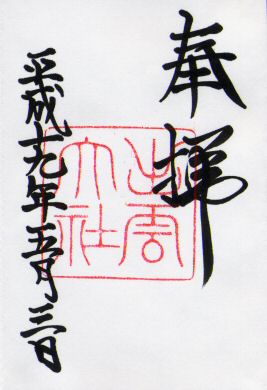 奉拝
出雲
大社
平成十九年五月三日